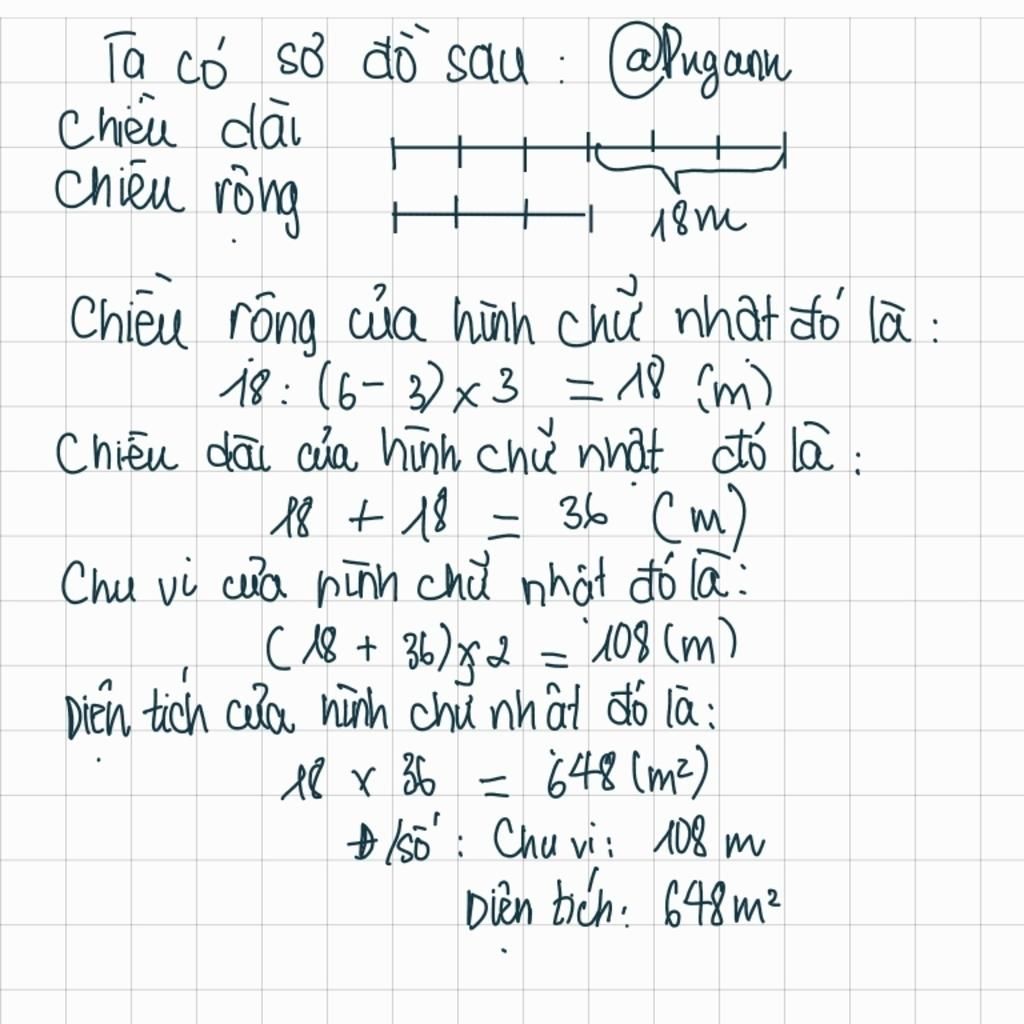 Ta có sơ đồ sau : @Pngann
Chiều dài
Chiều rộng
18m
Chiều rộng của hình chữ nhật đó là :
18 : (6 - 3) x 3 = 18 (m)
Chiều dài của hình chữ nhật đó là :
18 + 18 = 36 (m)
Chu vi của hình chữ nhật đó là :
(18 + 36) x 2 = 108 (m)
Diện tích của hình chữ nhật đó là :
18 x 36 = 648 (m²)
Đ/số : Chu vi : 108 m
Diện tích : 648 m²